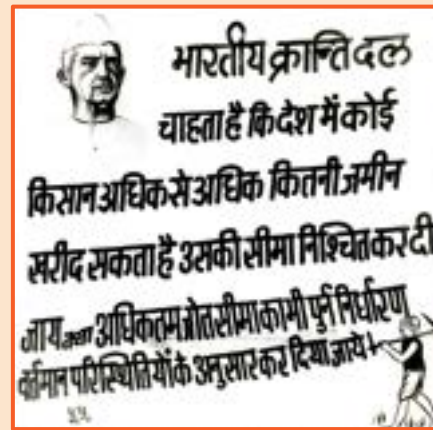 भारतीय क्रान्ति दल
चाहता है कि देश में कोई
किसान अधिक से अधिक कितनी जमीन
खरीद सकता है उसकी सीमा निश्चित कर दी
जाय तथा अधिकतम जोत सीमा का भी पुर्न निर्धारण
वर्तमान परिस्थितियों के अनुसार कर दिया जाये।